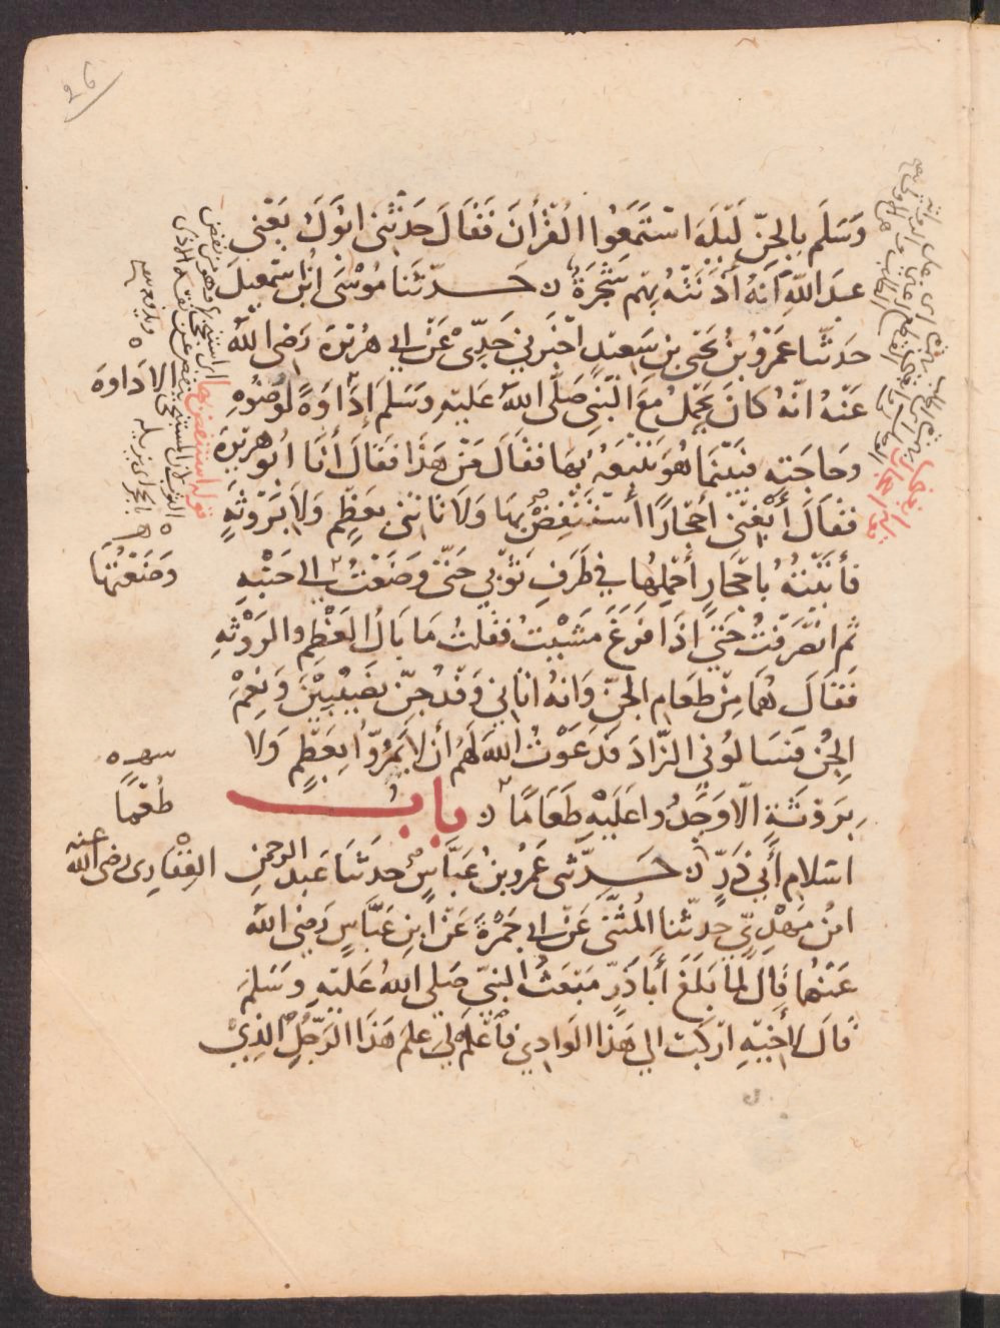 26
وَسَلَّم بالجِنّ لَيْلَةَ اسْتَمَعُوا القُرْأنَ فَقَالَ حَدَّثَنِي ابُوكَ يَعْنِي
عبدَ اللّهِ أنَّهُ أذَنَتْهُ بِهِم شَجَرَةٌ ه حَدَّثَنَا مُوْسَى ابْنُ سمعِيلَ
حدثنا عَمْرُو بنُ يَحْيَى بن سَعِيدٍ اخْبَرني جَدِّي عَنْ ابي هُرَيْرَةَ رَضِى اللهُ
عَنْهُ انّهُ كانَ يَحْمِلُ مَعَ النَّبيِّ صَلَّى اللهُ عَليهِ وَسَلَّمَ إدَاوَةً لوضُوْءِهِ
وحَاجَتِهِ فَبَيْنَمَا هُوَ يَتْبَعُهُ بِهَا فقَالَ مَنْ هَذَا فَقَالَ أَنَا ابُو هريْرَةَ
فقَالَ أَبْغِنِي أحْجَارًا أَسْتَنْفِضْ بِهَا وَلَا تَاتِنِي بعَظْمٍ وَلَا بِرَوْثَةٍ
فأتَيْتُهُ بأحْجَارٍ أحْمِلُهَا في طَرَفِ ثَوْبي حَتّى وَضَعْتُ الى جَنْبِهِ
ثم انصَرَفْتُ حَتّى اذَا فَرَغَ مَشَيْتُ فقلتُ مَا بَالُ العَظْمِ والرَوْثَةِ
فَقَالَ هُمَا مِنْ طعَامِ الجِنّ وَانهُ اتَاني وَفْدُ جِنِّ نَصِيْبِيْنَ وَنِعْمَ
الجِنُّ فَسَالُوْني الزَّادَ فدَعَوْتُ اللهَ لَهُمْ أن لَا يَمُرُّوا بِعَظْمٍ وَلَا
بِرَوْثَةٍ الّا وَجَدُوا عَلَيْهِ طَعَامًا ه باب
اسْلام أَبي ذَرٍّ ه حَدَّثَنِي عَمْرُو بنُ عَبَّاسٍ حدثنَا عَبد الرحمنِ
ابنُ مَهْدِيٍّ حدثنا المُثَنَّى عَنْ ابي جَمْرَةَ عَنْ ابنِ عَبَّاسٍ رَضِى اللهُ
عَنْهُما قَالَ لَمَّا بَلَغَ أبَا ذَرٍّ مَبْعَثُ النبيّ صَلى اللهُ عَليهِ وَسَلّمَ
قَالَ لأخِيْهِ ارْكَبْ الى هَذَا الوَادِي فأعْلَمْ لِي عِلْمَ هَذَا الرَجُلِ الذِيْ
الاداوة
وَضَعْتُهَا
طُعْمًا
الغِفَارِي رضى الله عنه
قوله استنفض بها